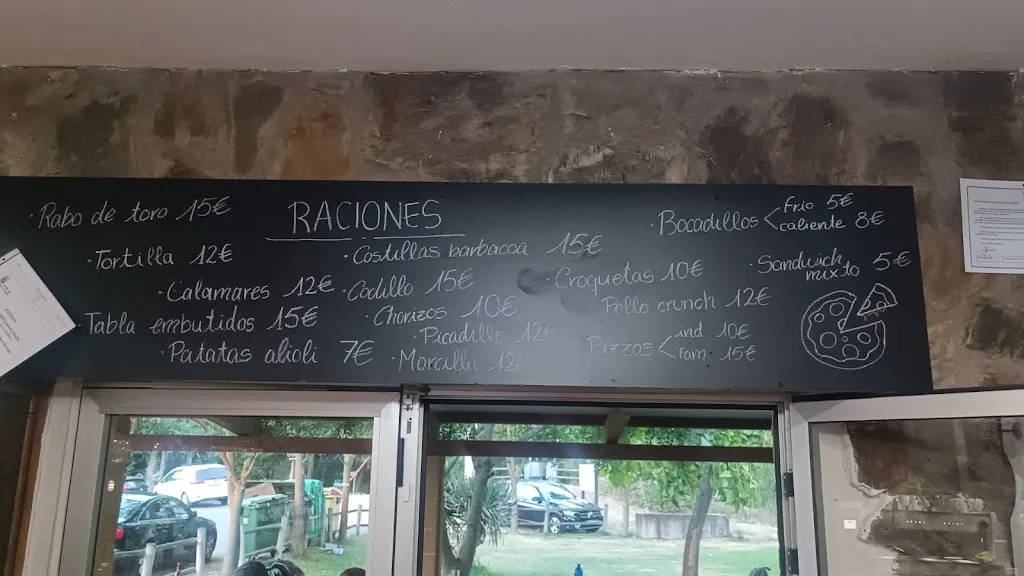 RACIONES
· Rabo de toro 15€
· Tortilla 12€
· Calamares 12€
· Tabla embutidos 15€
· Patatas alioli 7€
· Costillas barbacoa 15€
· Codillo 15€
· Chorizos 10€
· Picadillo 12€
· Morcilla 12€
· Croquetas 10€
Pollo crunch 12€
Pizzas < ind 10€
fam. 15€
· Bocadillos < frio 5€
caliente 8€
· Sandwich
mixto 5€